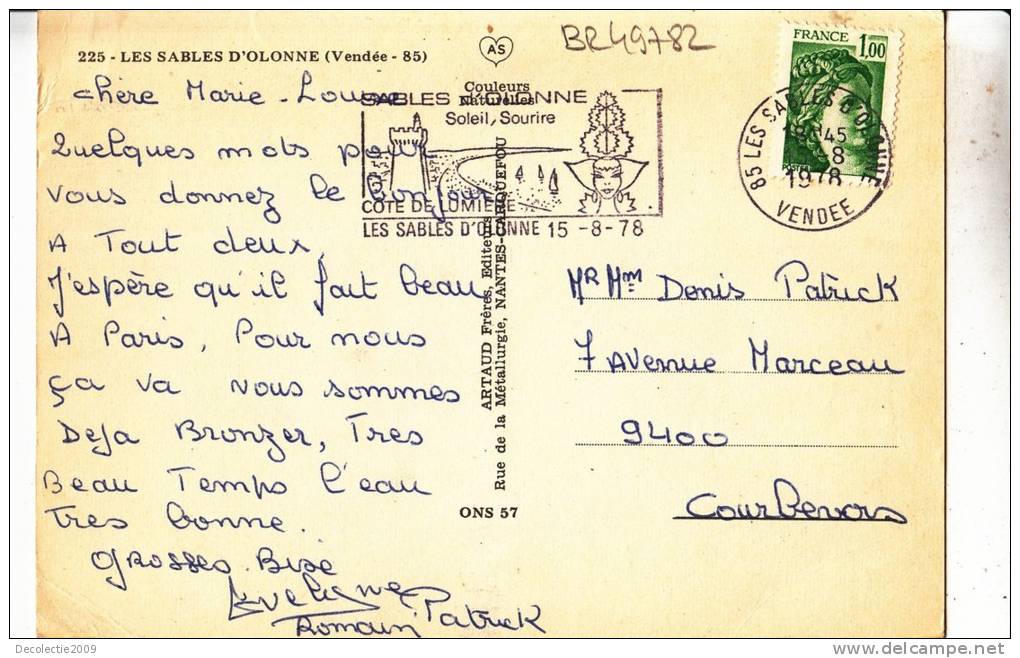 BR49782
225 - LES SABLES D'OLONNE (Vendée - 85)
AS
Couleurs
Naturelles
FRANCE 1,00
SABLES D'OLONNE
Soleil, Sourire
COTE DE LUMIERE
LES SABLES D'OLONNE 15 -8-78
85 LES SABLES D'OLONNE
18H45
8
1978
VENDEE
chère Marie-Louise
Quelques mots pour
vous donnez le Bonjour
A Tout deux,
J'espère qu'il fait beau
A Paris, Pour nous
ça va nous sommes
Deja Bronzer, Tres
Beau Temps l'eau
Tres bonne.
grosses Bise
Evelyne
Romain Patrick
ARTAUD Frères, Editeurs
Rue de la Métallurgie, NANTES-CARQUEFOU
ONS 57
MR Mm Denis Patrick
7 Avenue Marceau
9400
Courbevois
Decolectie2009
www.delcampe.net